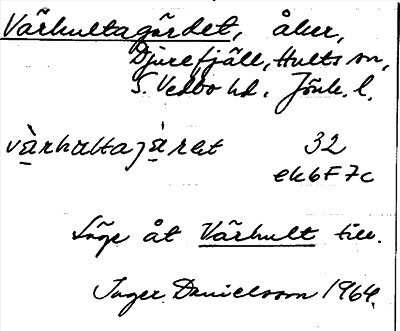 Värhultagärdet, åker,
Djurefjäll, Hults sn,
S. Vedbo hd. Jönk. l.
32
ek6F7c
Låge åt Värhult till.
Inger Danielsson 1964.